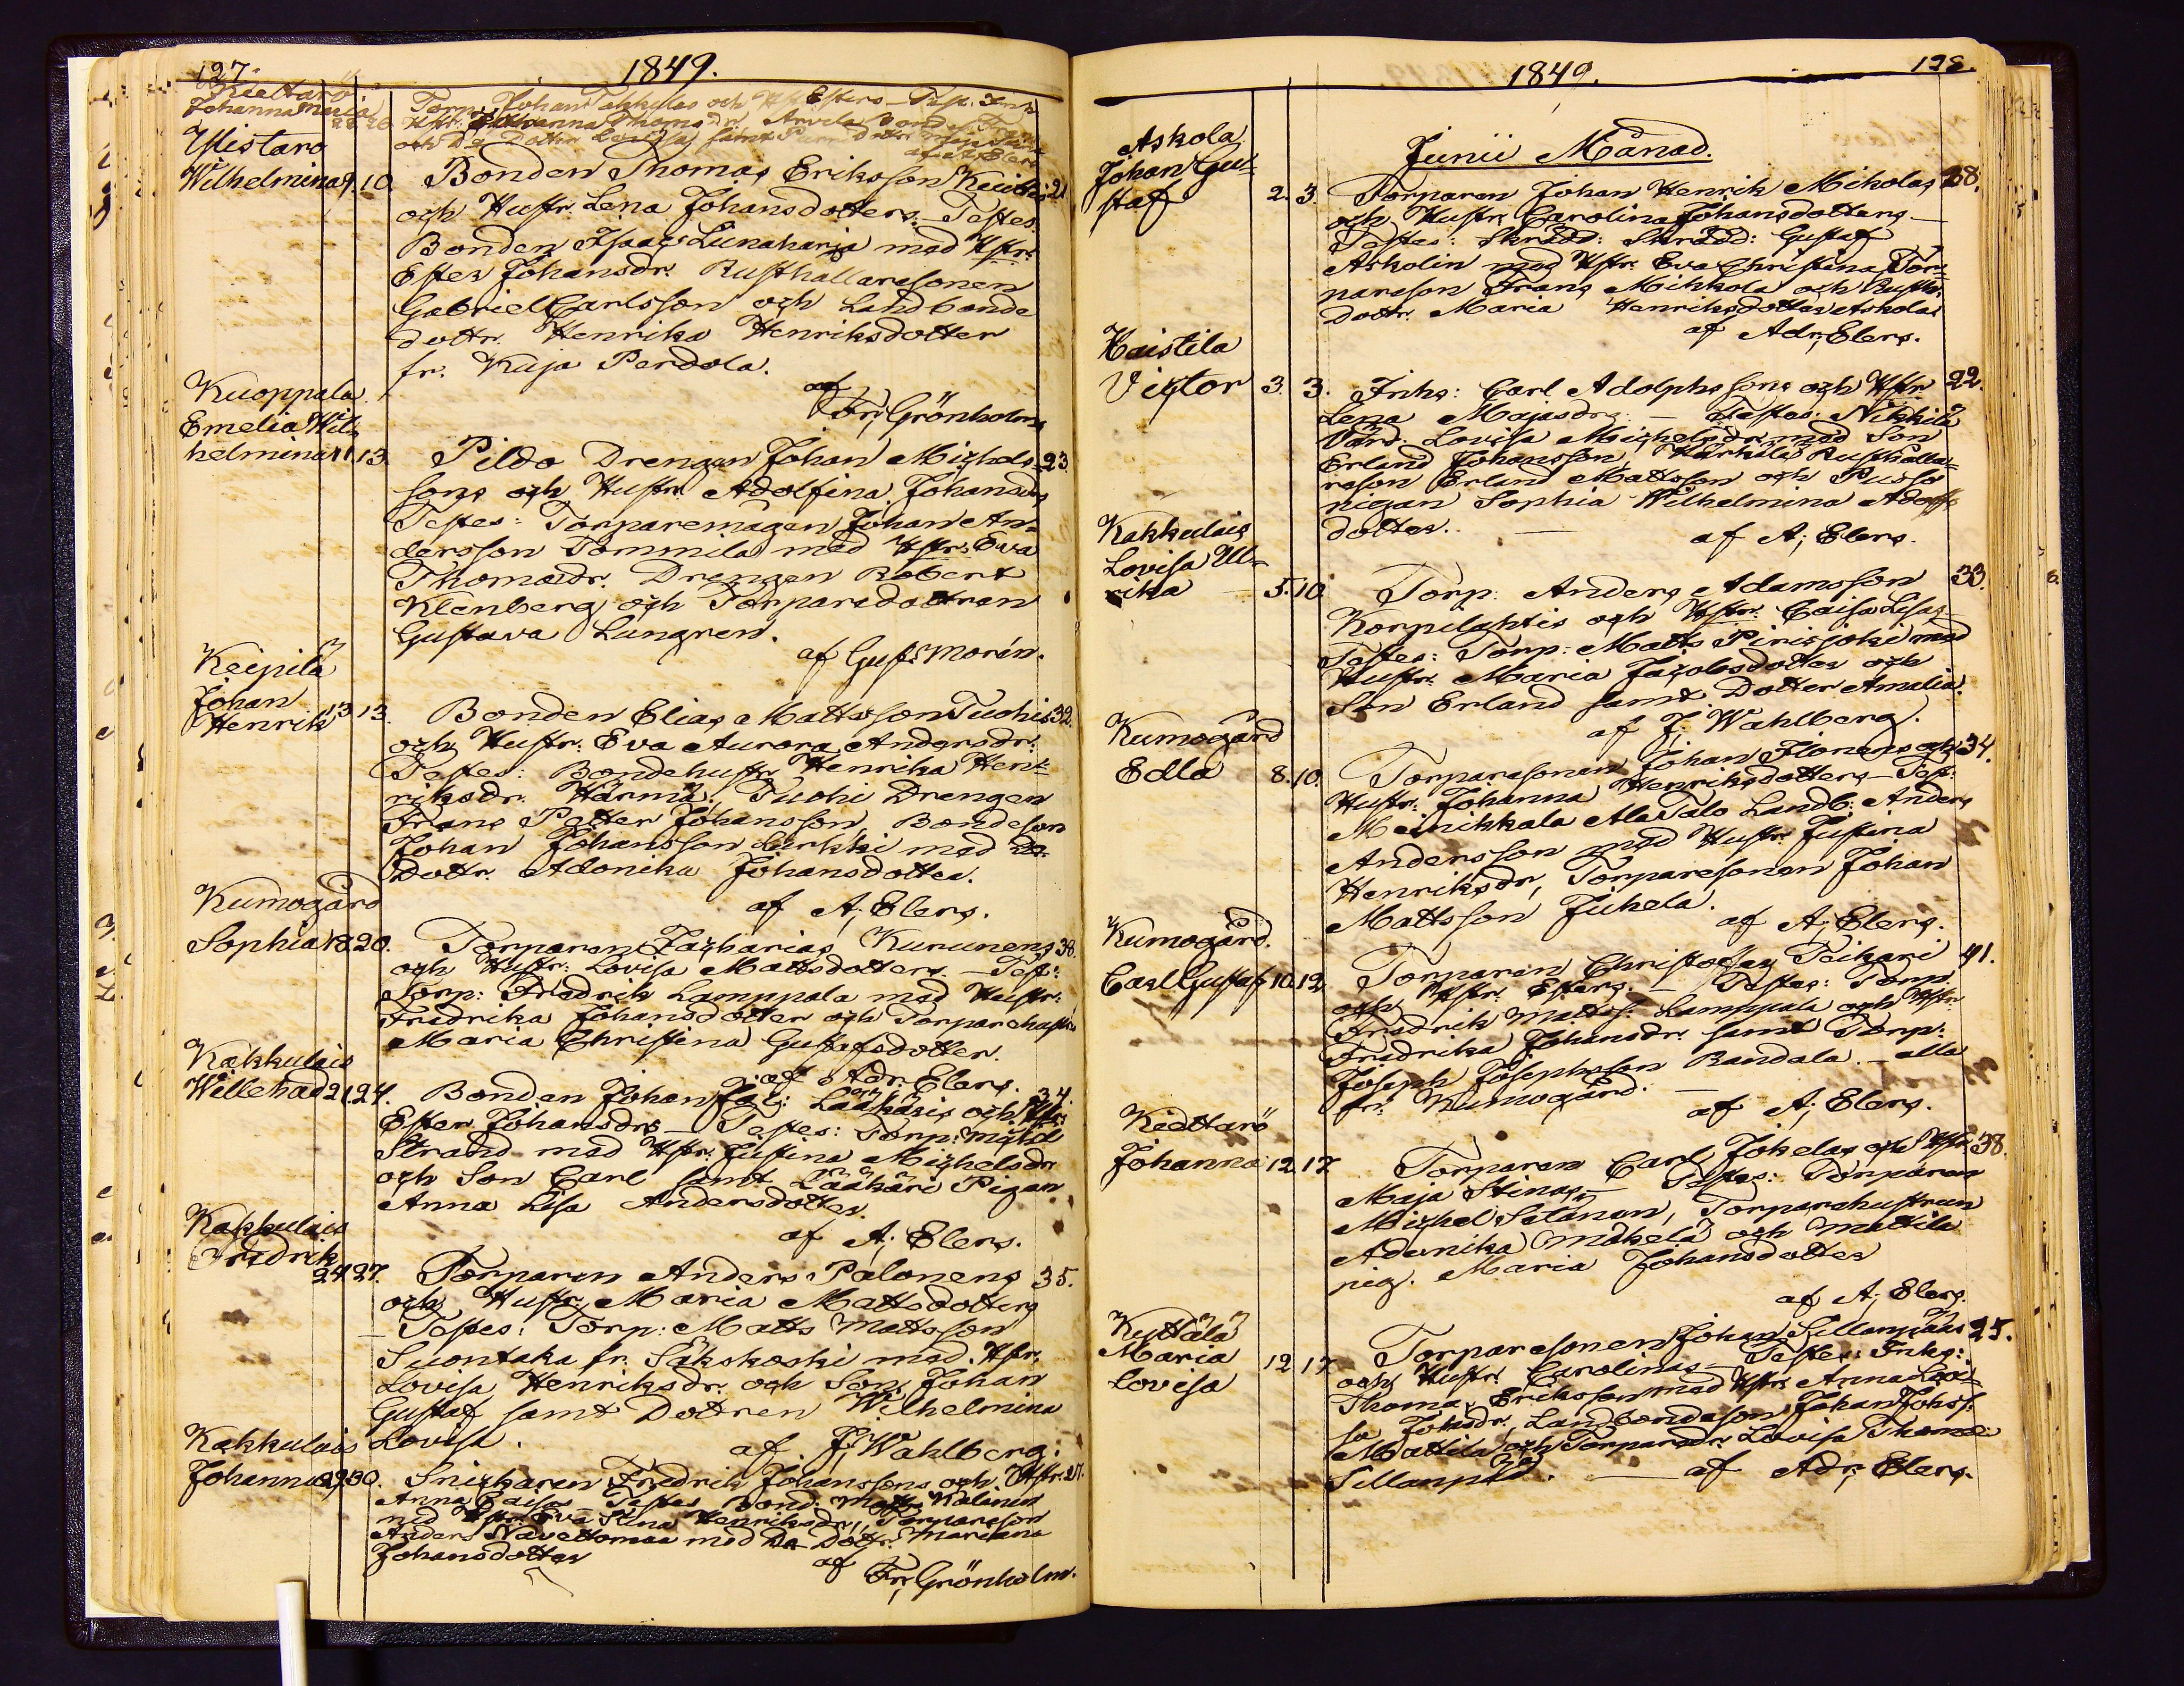 127.
1849.
Kiettarö
Johanna Maria
28. 28. Torp: Johan Takkulas och H Esters – Test.
Hustr: Johanna Thomsdr.
och Da Dotter Lovisa samt
af A; Elers
Yllistaro
Wilhelmina 9. 10. Bonden Thomas Eriksson 21
och Hustr. Lena Johansdotters. – Testes.
Bonden Isaac Liinaharja med Hstr.
Ester Johansdr. Rusthallaresonen
Gabriel Carlsson och Landbonde
dottr. Henrika Henriksdotter
fr. Kuja Perdola.
af
Fr; Grönholm
Kuoppala
Emelia Wil-
helmina 11. 13. Pildo Drengen Johan Michels- 23.
sons och Hustr. Adolfina Johansdrs
Testes: Torparemågen Johan An-
dersson Tommila med Hstr. Eva
Thomasdr. Drengen Robert
Klenberg och Torparedottren
Gustava Lungren.
af Gust. Morén.
Keipilä
Johan
Henrik 13 13. Bonden Elias Mattsson Tuohis 32.
och Hustr. Eva Aurora Andersdr.
Testes: Bondehustr. Henrika Hen-
riksdr. Härmä, Tuohi Drengen
Frans Petter Johansson, Bondeson
Johan Johansson Lerkki med
Dottr. Adonika Johansdotter.
af A; Elers.
Kumogård
Sophia 18. 20. Torparen Zacharias Kurunens 38.
och Hustr: Lovisa Mattsdotters – Test:
Torp: Fredrik Lamppala med Hustr:
Fredrika Johansdotter och Torparehustr.
Maria Christina Gustafsdotter.
af Adr. Elers.
Kakkulais
Willehad 21. 24. Bonden Johan Jac: Lääkäris och Hstr. 34.
Ester Johansdrs – Testes: Torp: Michel
Strand med Hstr. Justina Michelsdr
och Son Carl samt Lääkäri Pigan
Anna Lisa Andersdotter.
af A; Elers.
Kakkulais
Fredrik
24 27. Torparen Anders Palonens 35.
och Hustr. Maria Mattsdotters
– Testes: Torp: Matts Mattsson
Suontaka fr. Säkskoski med Hstr.
Lovisa Henriksdr. och Son Johan
Gustaf samt Dottren Wilhelmina
Lovisa.
af J; Wahlberg.
Kakkulais
Johanna 29. 30. Snickaren Fredrik Johanssons och Hstr. 27.
Anna Caisas – Testes Bond. Matts Kalonen
med Hstr. Eva Stina Henriksdr, Torpareson
Anders Navettomaa med Da Dottr. Mariana
Johansdotter
af Fr; Grönholm.
1849.
128.
Junii Månad.
Askola
Johan Gu-
staf 2. 3. Torparen Johan Henrik Mikolas 28.
och Hustr. Carolina Johansdotters –
Testes: Skrädd: Skrädd: Gustaf
Askolin med Hstr. Eva Christina, Tor-
pareson Frans Mikkola och Rusth.
Dottr. Maria Henriksdotter Askolas
af Adr; Elers.
Kaistila
Victor 3. 3. Inhs: Carl Adolphssons och Hstr 22.
Lena Majasdrs. – Testes. Nikkilä
Värd. Lovisa Michelsdr. med Son
Erland Johansson, Härkälä Rusthålla-
reson Erland Mattsson och Pusso
pigan Sophia Wilhelmina Adolfs
dotter. –
af A; Elers.
Kakkulais
Lovisa Ul-
rika – 5. 10. Torp: Anders Adamsson 33.
Korpilahtis och Hstr. Caisa Lisas –
Testes: Torp: Matts Piirisjoki med
Hustr. Maria Jacobsdotter och
Son Erland samt Dotter Amalia.
af J; Wahlberg.
Kumogård
Edla 8. 10. Torparesonen Johan Florens och 34.
Hustr. Johanna Henriksdotters – Test:
Meinikkala Ala Talo Landb: Anders
Andersson med Hustr. Justina
Henriksdr, Torparesonen Johan
Mattsson Juhela.
af A; Elers.
Kumogård.
Carl Gustaf 10. 12. Torparen Christofer Teikari 41.
och Hstr. Esters. – Testes: Torp.
Fredrik Matts. Lamppala och Hstr.
Fredrika Johansdr. samt Torp:
Joseph Josephsson Randala. – alla
fr. Kumogård. –
af A; Elers.
Kiettarö
Johanna 12. 17 Torparen Carl Jokelas och Hstr. 38.
Maja Stinas – Testes: Torparen
Michel Salonen, Torparehustrun
Adamika Mäkelä och Mattila
pig. Maria Johansdotter
af A; Elers.
Kyttälä
Maria
Lovisa 12 17 Torparesonen Johan Sillanpääs 25.
och Hustr Carolinas – Testes: Inhs:
Thomas Eriksson med Hstr Anna Lovi-
sa Johsdr, Landbondeson Johan Johss:
Mattila och Torparedr. Lovisa Thomas:
Sillanpää. – af Adr; Elers.